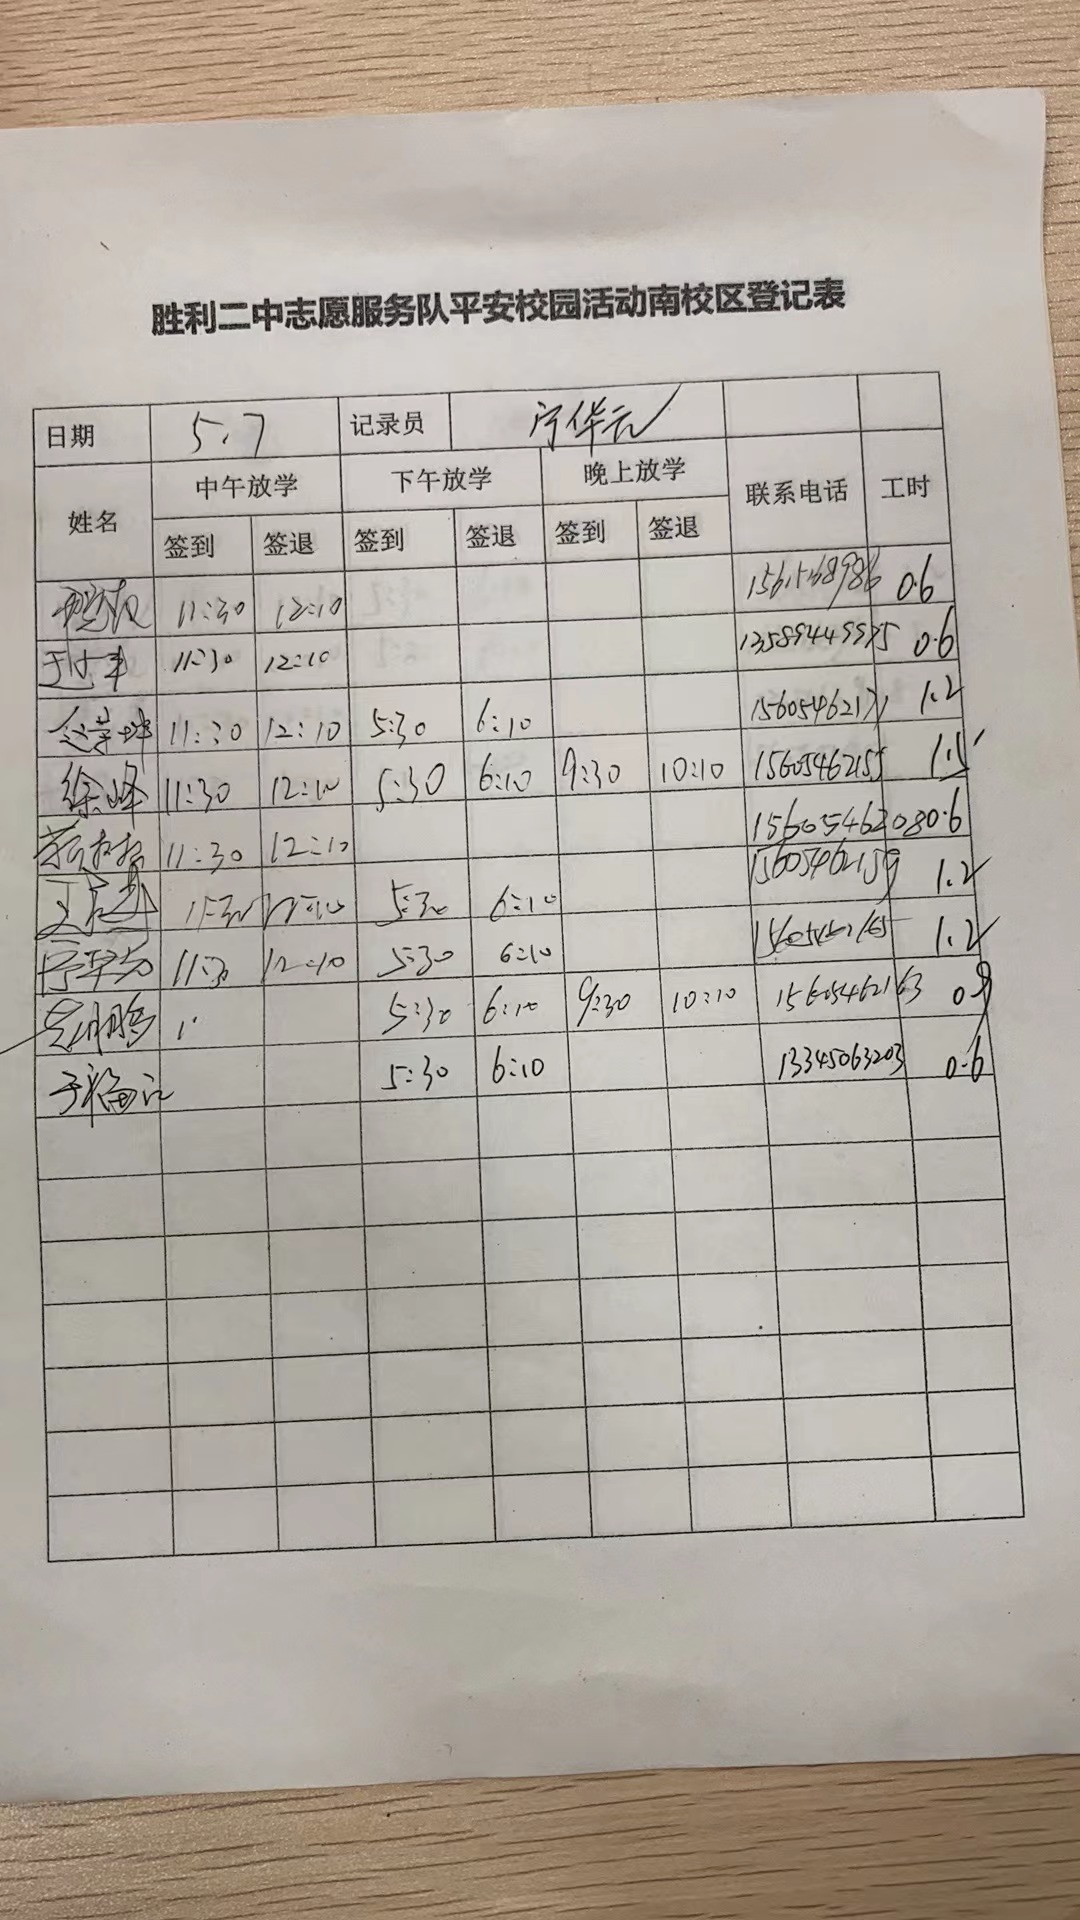 胜利二中志愿服务队平安校园活动南校区登记表
日期 5.7 记录员 宁华云
姓名 中午放学 下午放学 晚上放学 联系电话 工时
签到 签退 签到 签退 签到 签退
11:30 12:10 0.6
11:30 12:10 13589449975 0.6
11:30 12:10 5:30 6:10 15605462171 1.2
徐峰 11:30 12:10 5:30 6:10 9:30 10:10 15605462155 1.5
11:30 12:10 15605462080 0.6
11:30 12:10 5:30 6:10 15605462159 1.2
11:30 12:10 5:30 6:10 15605462165 1.2
5:30 6:10 9:30 10:10 15605462163 0.9
于福江 5:30 6:10 13345063203 0.6